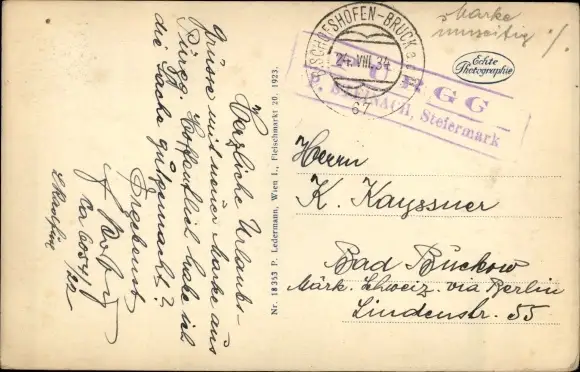 Herzliche Urlaubs-
grüsse mit neuer Marke aus
Pürgg. Hoffentlich habe ich
die Sache gutgemacht?
Ergebenst
Nr. 18353 P. Ledermann, Wien I., Fleischmarkt 20. 1923.
Marke
umseitig ./.
BISCHOFSHOFEN-BRUCK a.
24.VIII.34
67
Echte
Photographie
PÜRGG
STAINACH, Steiermark
Herrn
K. Kayssner
Bad Buckow
Märk. Schweiz. via Berlin
Lindenstr. 55